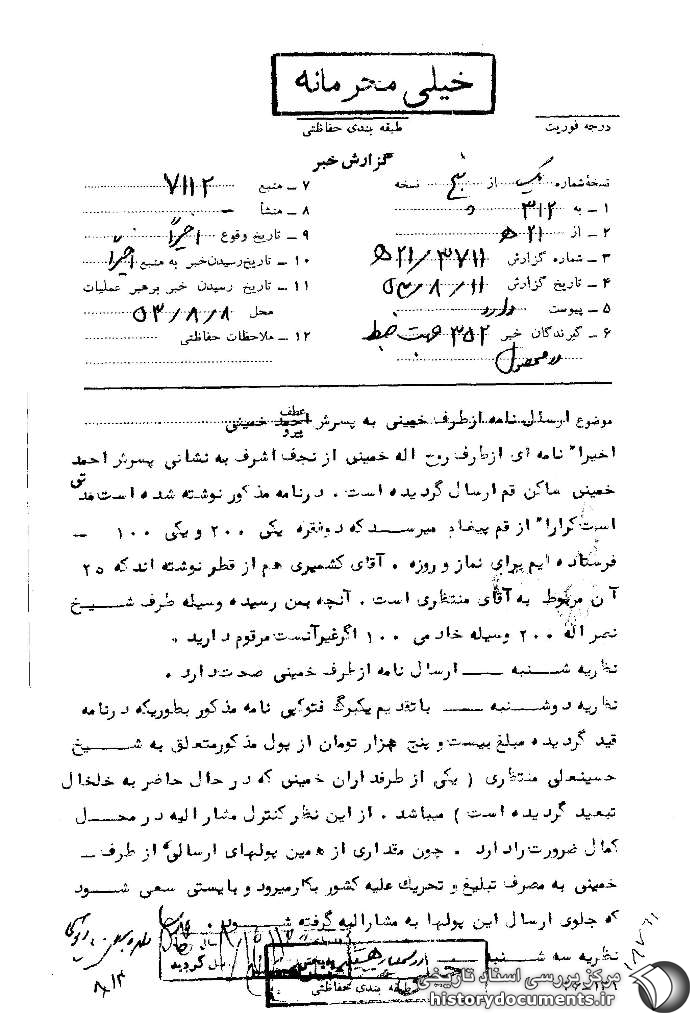 خیلی محرمانه
درجه فوریت
طبقه بندی حفاظتی
گزارش خبر
نسخهٔ شماره یک از پنج نسخه
۱ ـ به ۳۱۲
۲ ـ از ۲۱ ه
۳ ـ شماره گزارش ۳۷۱۱/ ۲۱ ه
۴ ـ تاریخ گزارش ۵۳/۸/۱۱
۵ ـ پیوست دارد
۶ ـ گیرندگان خبر ۳۵۲ جهت ضبط
در محصول
۷ ـ منبع ۷۱۱۲
۸ ـ منشأ ـ
۹ ـ تاریخ وقوع اخیراً
۱۰ ـ تاریخ رسیدن خبر به منبع اخیراً
۱۱ ـ تاریخ رسیدن خبر برهبر عملیات
محل ۵۳/۸/۸
۱۲ ـ ملاحظات حفاظتی
موضوع ارسال نامه ازطرف خمینی به پسرش احمد خمینی
عطف
پیرو
اخیرا" نامه ای ازطرف روح اله خمینی از نجف اشرف به نشانی پسرش احمد
خمینی ساکن قم ارسال گردیده است . درنامه مذکور نوشته شده است مدتی
است کرارا" از قم پیغام میرسد که دوفقره یکی ۲۰۰ و یکی ۱۰۰ ـ
فرستاده ایم برای نماز و روزه . آقای کشمیری هم از قطر نوشته اند که ۲۵
آن مربوط به آقای منتظری است . آنچه بمن رسیده وسیله طرف شیخ
نصراله ۲۰۰ وسیله خادمی ۱۰۰ اگرغیرآنست مرقوم دارید .
نظریه شنبه ـــ ارسال نامه ازطرف خمینی صحت دارد .
نظریه دوشنبه ـــ باتقدیم یکبرگ فتوکپی نامه مذکور بطوریکه درنامه
قید گردیده مبلغ بیست و پنج هزار تومان از پول مذکورمتعلق به شیخ
حسینعلی منتظری ( یکی از طرفداران خمینی که در حال حاضر به خلخال
تبعید گردیده است ) میباشد . از این نظر کنترل مشارالیه در محل
کمال ضرورت رادارد . چون مقداری از همین پولهای ارسالی از طرف ـ
خمینی به مصرف تبلیغ و تحریک علیه کشور بکارمیرود و بایستی سعی شود
که جلوی ارسال این پولها به مشارالیه گرفته شود .
نظریه سه شنبه ـــ
۸/۱۴
طبقه بندی حفاظتی
مرکز بررسی اسناد تاریخی
historydocuments.ir